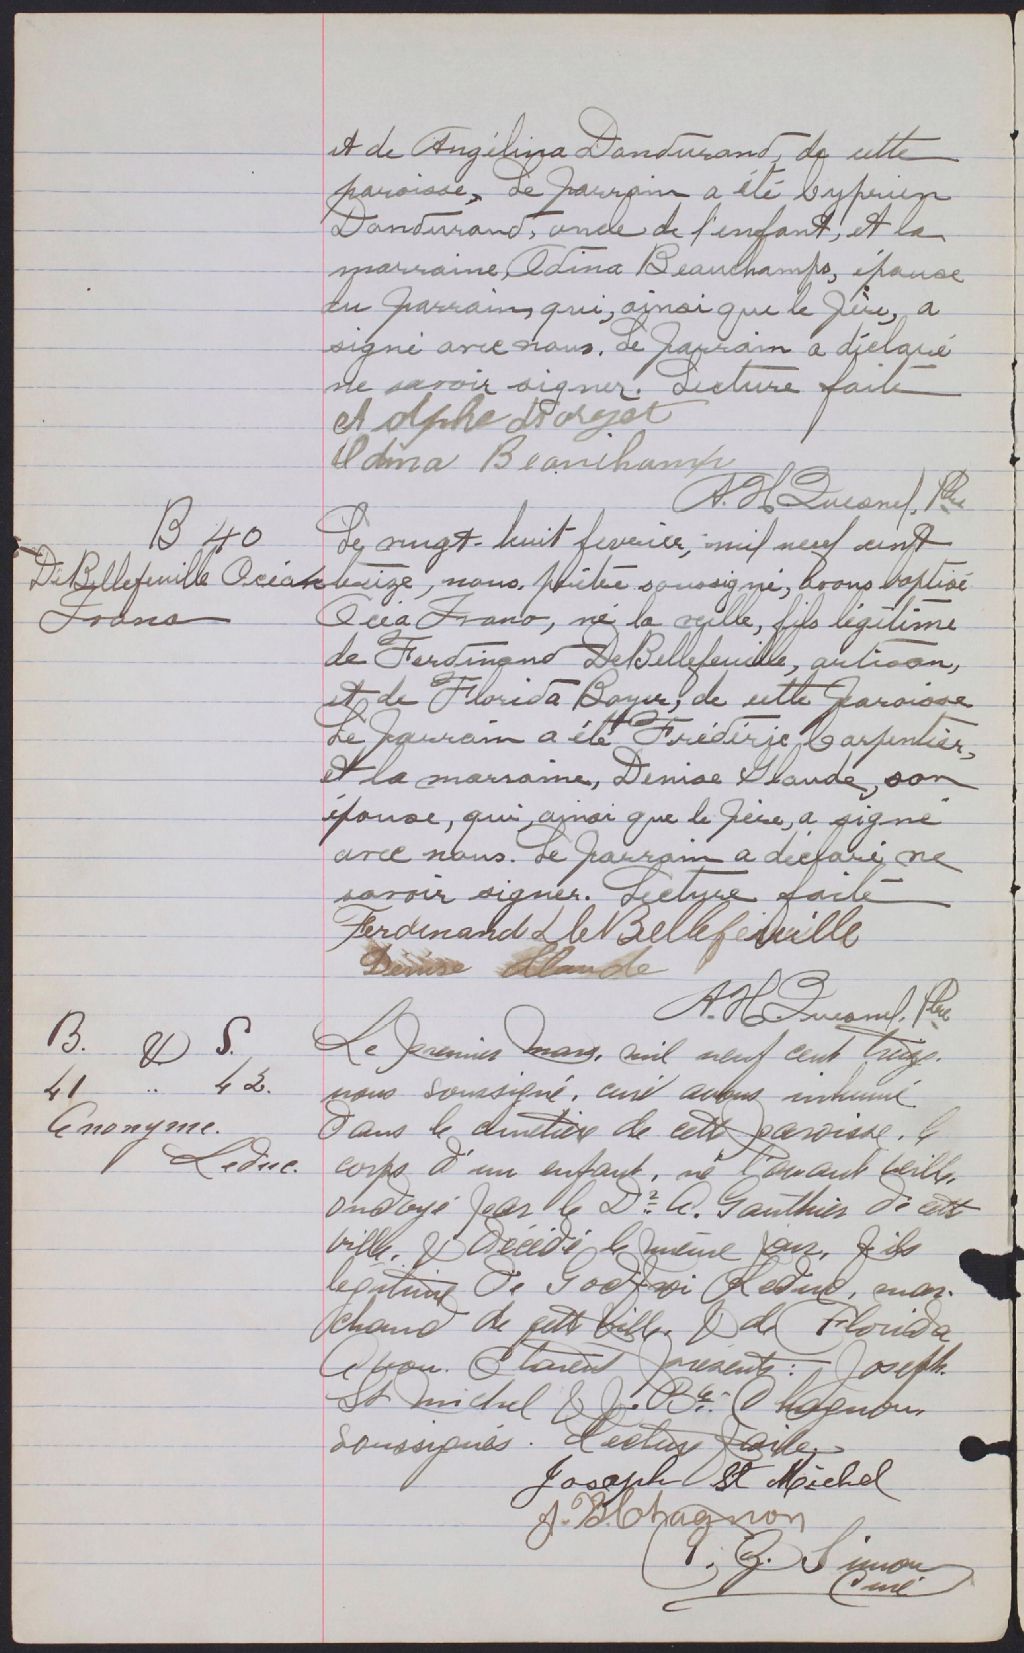 et de Angélina Dandurand, de cette
paroisse, Le parrain a été Cyprien
Dandurand, oncle de l'enfant, et la
marraine, Edina Beauchamps, épouse
du parrain, qui, ainsi que le père, a
signé avec nous. Le parrain a déclaré
ne savoir signer. Lecture faite
Adolphe Forget
Edina Beauchamp
A. H. Quesnel, Ptre
B 40
De Bellefeuille Océa
Frans
Le vingt-huit fevrier, mil neuf cent
treize, nous, prêtre soussigné, avons baptisé
Océa Frans, né la veille, fils légitime
de Ferdinand DeBellefeuille, artisan,
et de Florida Boyer, de cette paroisse
Le parrain a été Frédéric Carpentier,
et la marraine, Denise Glaude, son
épouse, qui, ainsi que le père, a signé
avec nous. Le parrain a déclaré ne
savoir signer. Lecture faite
Ferdinand De Bellefeuille
Denise Glaude
A. H. Quesnel, Ptre
B. & S.
41 .. 42.
Anonyme.
Leduc.
Le premier mars, mil neuf cent treize,
nous soussigné, curé avons inhumé
dans le cimetière de cette paroisse, le
corps d'un enfant, né l'avant veille,
ondoyé par le Dr. A. Gauthier de cette
ville, & décédé le même jour, fils
légitime de Godfroi Leduc, mar-
chand de cette ville, & de Florida
Etaient présents: Joseph
St Michel & J. Bte Chagnon
soussignés. Lecture faite.
Joseph St Michel
J. B. Chagnon
Simon
Curé